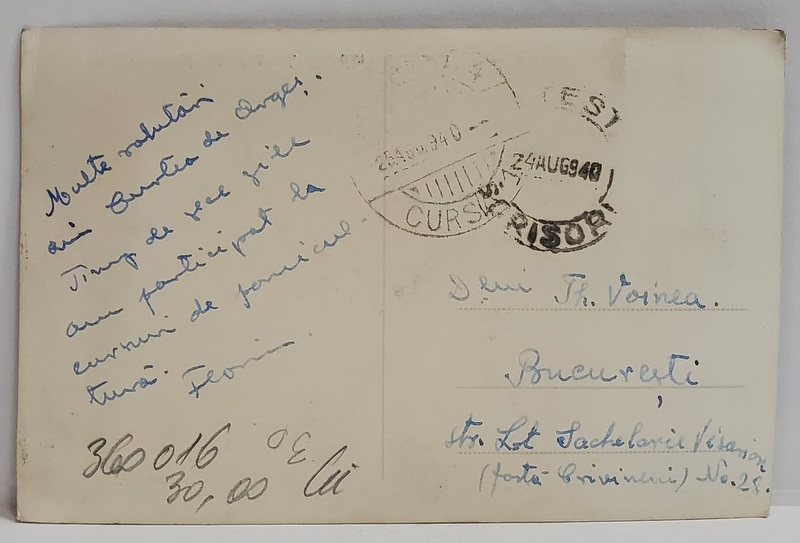 Multe salutări
din Curtea de Argeș.
Timp de zece zile
am participat la
cursuri de pomicul-
tură. Florin.
360016
30,00 Lei
25 AUG. 940
CURS
24 AUG 940
RISORI
Dlui Th. Voinea.
București
str. Lot. Sachelarie Visarion
(fostă Crivineni) No. 28.